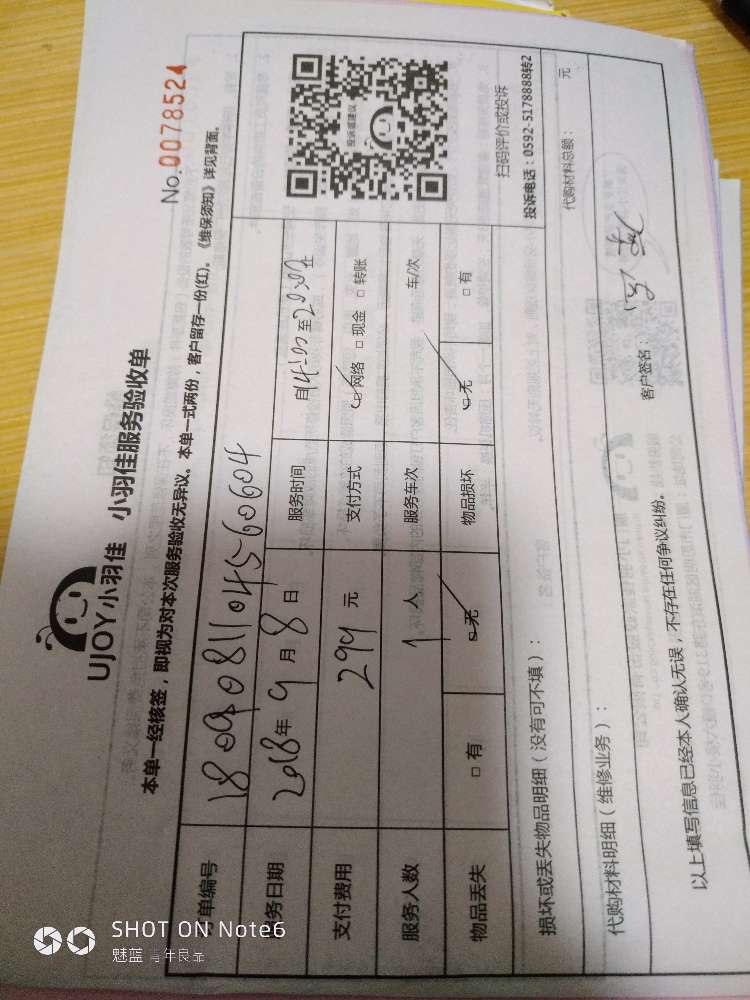 UJOY小羽佳 小羽佳服务验收单
No.0078524
本单一经核签，即视为对本次服务验收无异议。本单一式两份，客户留存一份(红)。《维保须知》详见背面。
单编号 1809081104560604
务日期 2018年9月8日 服务时间 自14:00至20:00止
支付费用 299元 支付方式 □网络 □现金 □转账
服务人数 1人 服务车次 车/次
物品丢失 □有 □无 物品损坏 □无 □有
投诉或建议
扫码评价或投诉
投诉电话：0592-5178888转2
损坏或丢失物品明细（没有可不填）：
代购材料明细（维修业务）： 代购材料总额： 元
以上填写信息已经本人确认无误，不存在任何争议纠纷。 客户签名：
SHOT ON Note6
魅蓝 青年良品